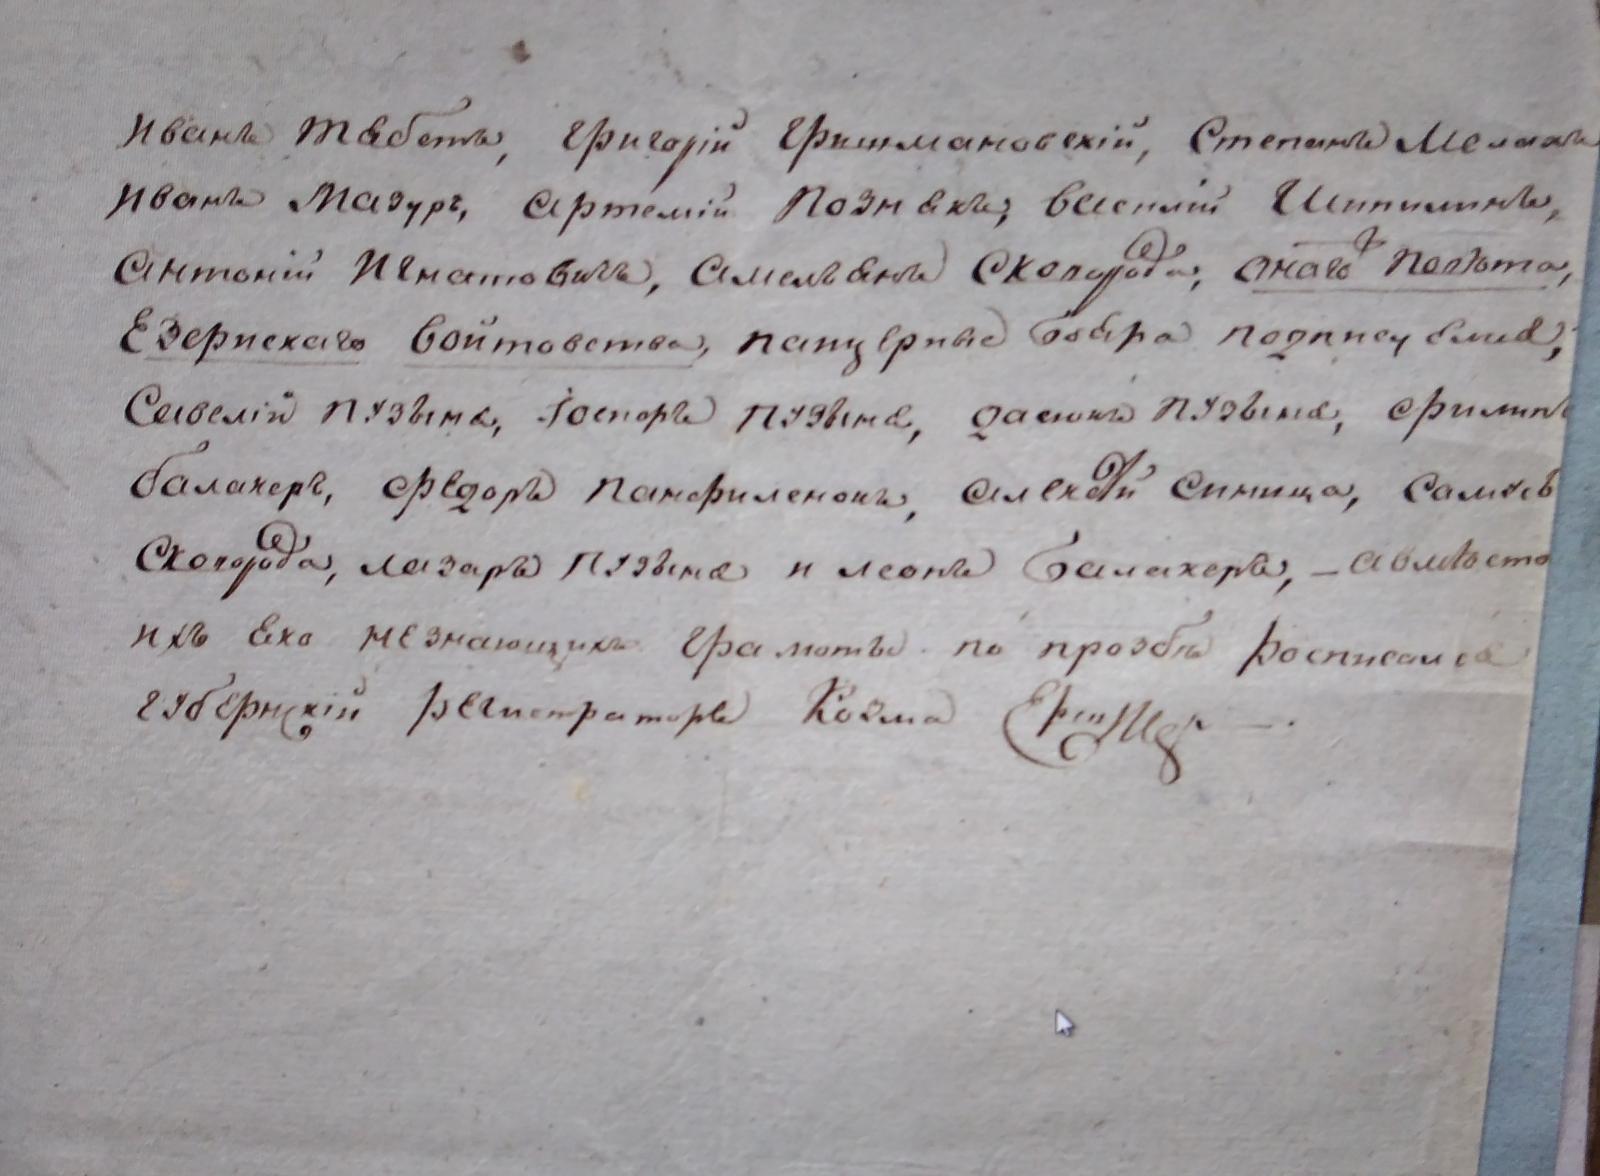 Иванъ Тябетъ, Григорій Гришмановскій, Степанъ
Иванъ Мазуръ, Артемій Познякъ, Василій Шипилинъ,
Антоній Игнатовичъ, Амельянъ Скопорода, онаго Повѣта,
Езерискаго Войтовства, панцерные бояра подписуемся,
Савелій Пузына, Іоспоръ Пузына, Дасюкъ Пузына, Филипъ
Балахеръ, Федоръ Панфиленокъ, Алексѣй Синица,
Скопорода, Лазаръ Пузына и Леонъ Балахеръ, – авмѣсто
ихъ яко незнающихъ грамотѣ по прозбѣ росписался
Губернскій регистраторъ Козма